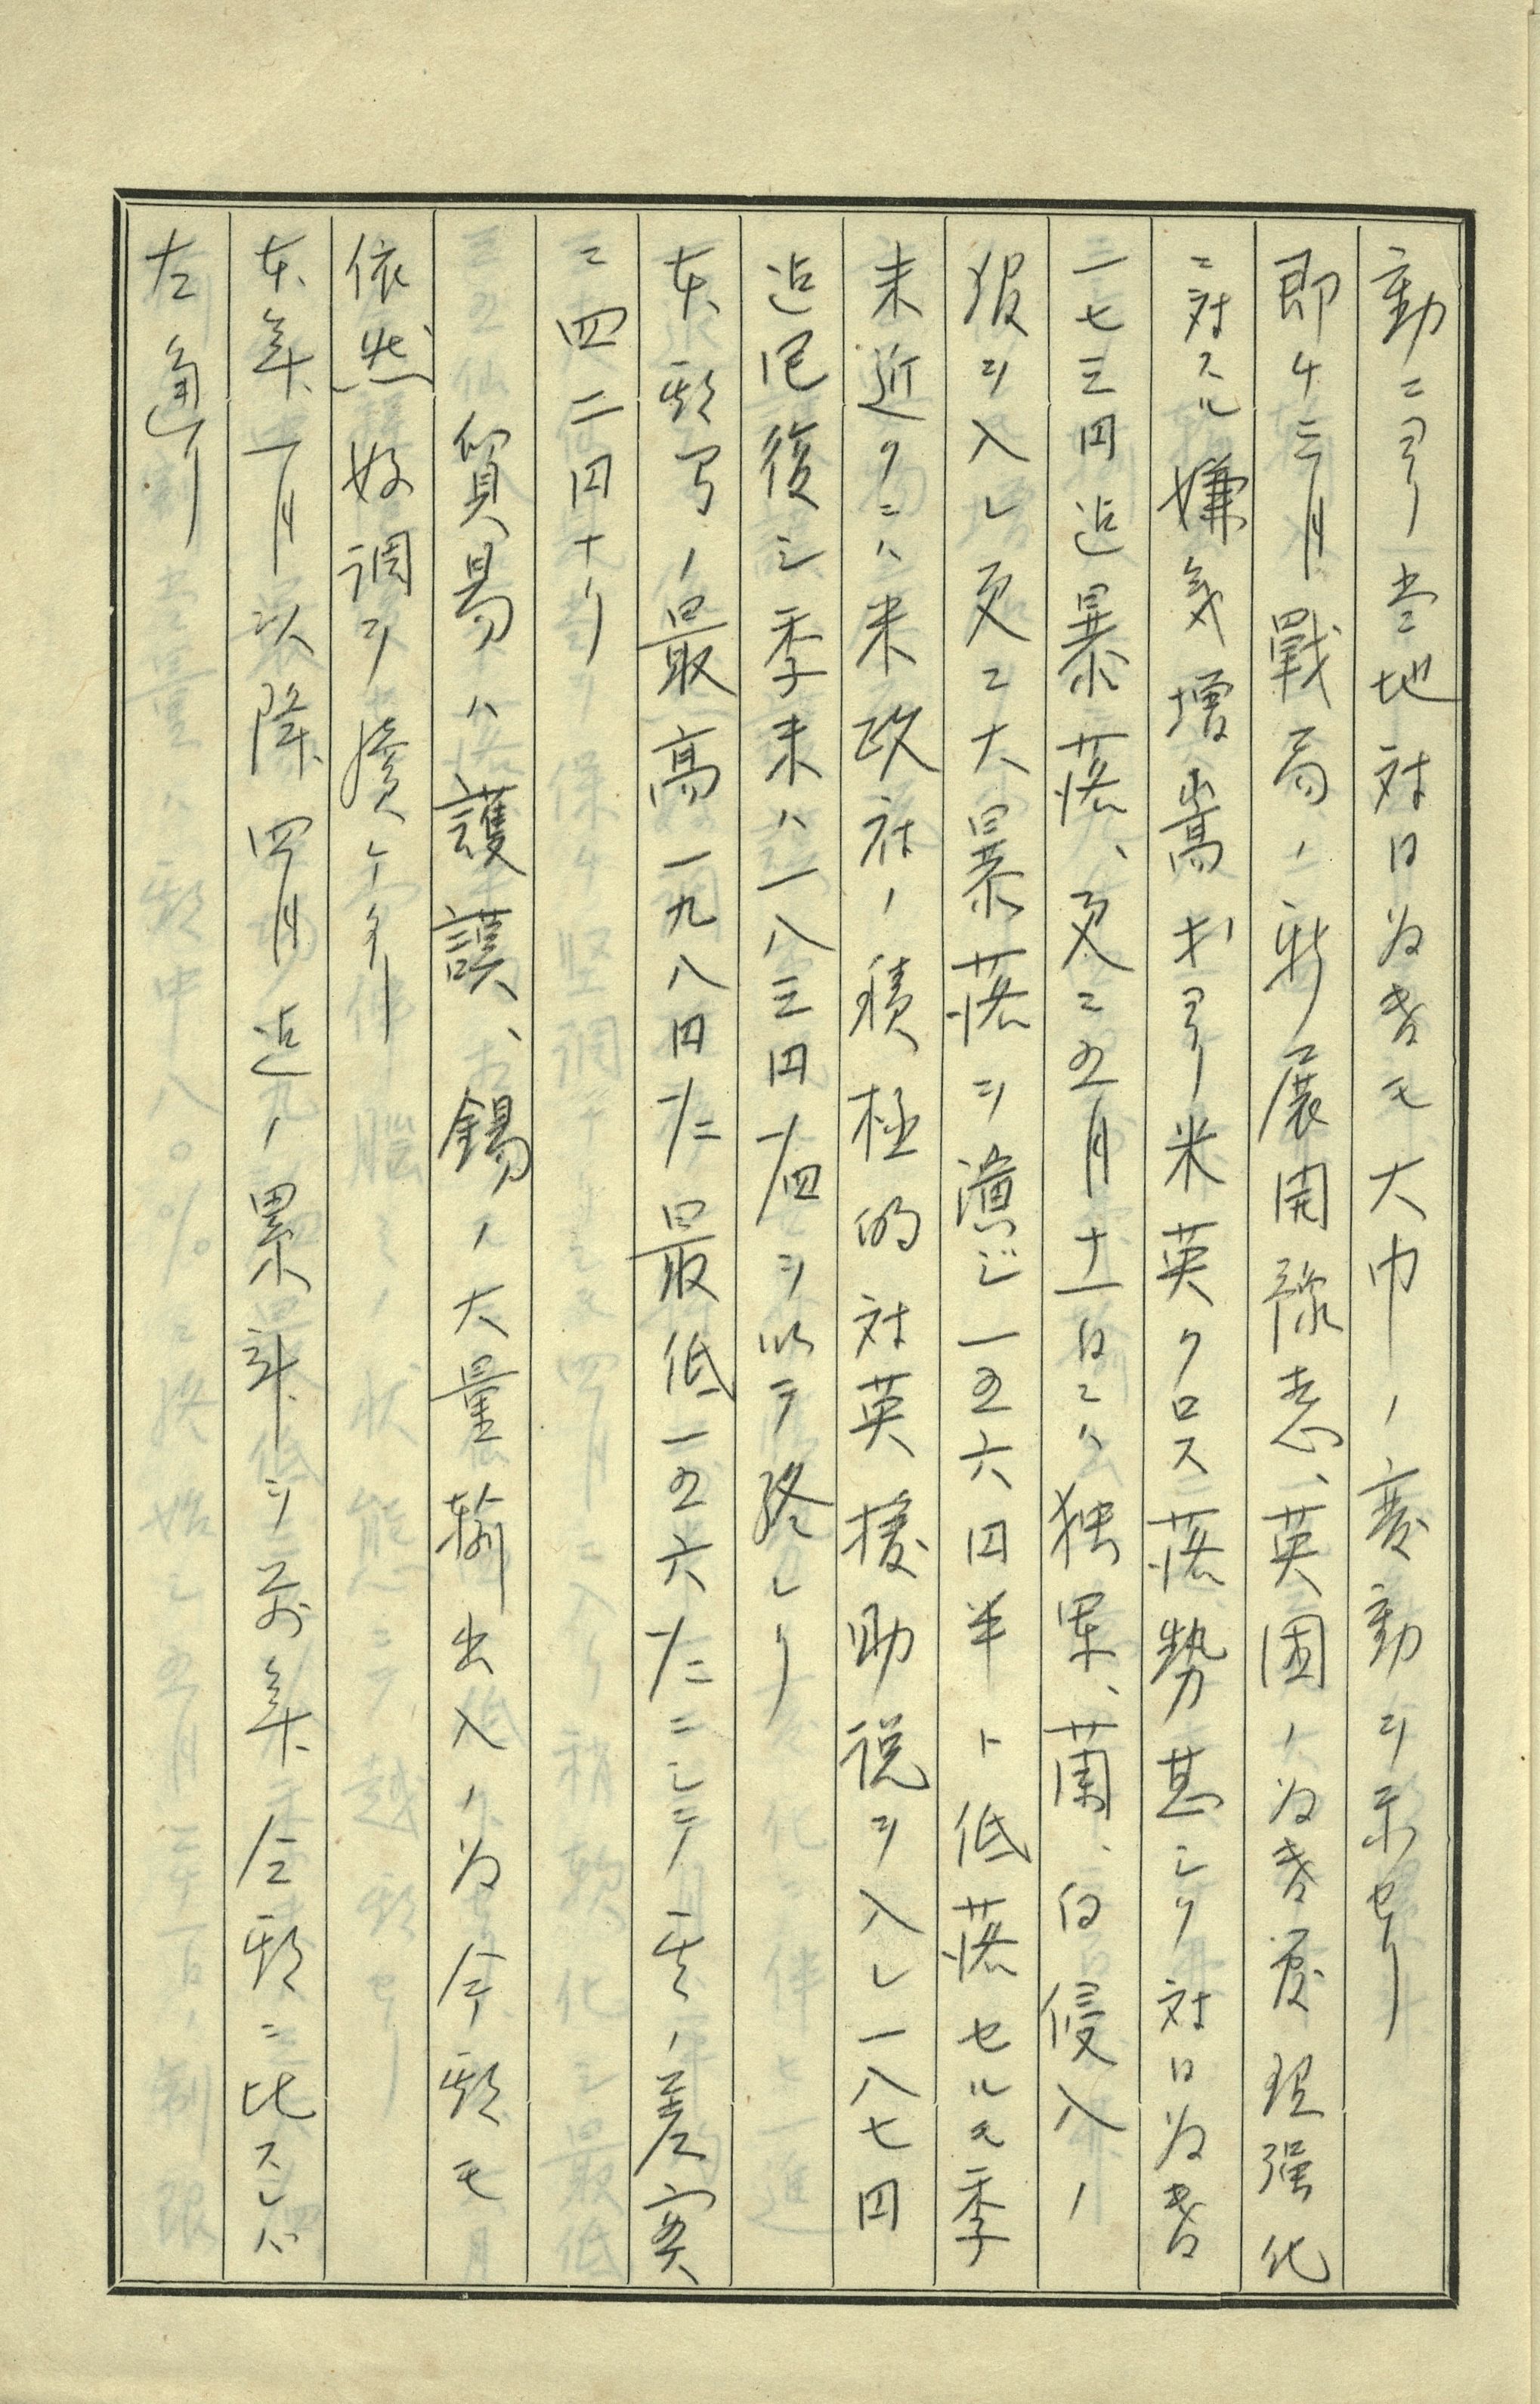 動ニヨリ当地対日为替モ大巾ノ変動ヲ示セリ
即チ三月戰局ノ新展開豫想、英国ノ为替管理强化
ニ対スル嫌気增嵩ヨリ米英クロス落勢甚シク対日为替
二七三円迄暴落、更ニ五月十一日ニハ独軍、蘭、白侵入ノ
報ヲ入レ更ニ大暴落ヲ演ジ一五六円半ト低落セルモ季
末近クニハ米政府ノ積極的対英援助説ヲ入レ一八七円
迄回復シ季末ハ一八三円1/四ヲ以テ終レリ
本期間ノ最高一九八円1/二最低一五六1/二ニシテ其ノ差実
ニ四二円ナリ
貿易ハ護謨、錫ノ大量輸出入ノ为今期モ
依然好調ヲ續ケタリ
本年一月以降四月迄ノ累計ヲ前年仝期ニ比スレバ
左通リ